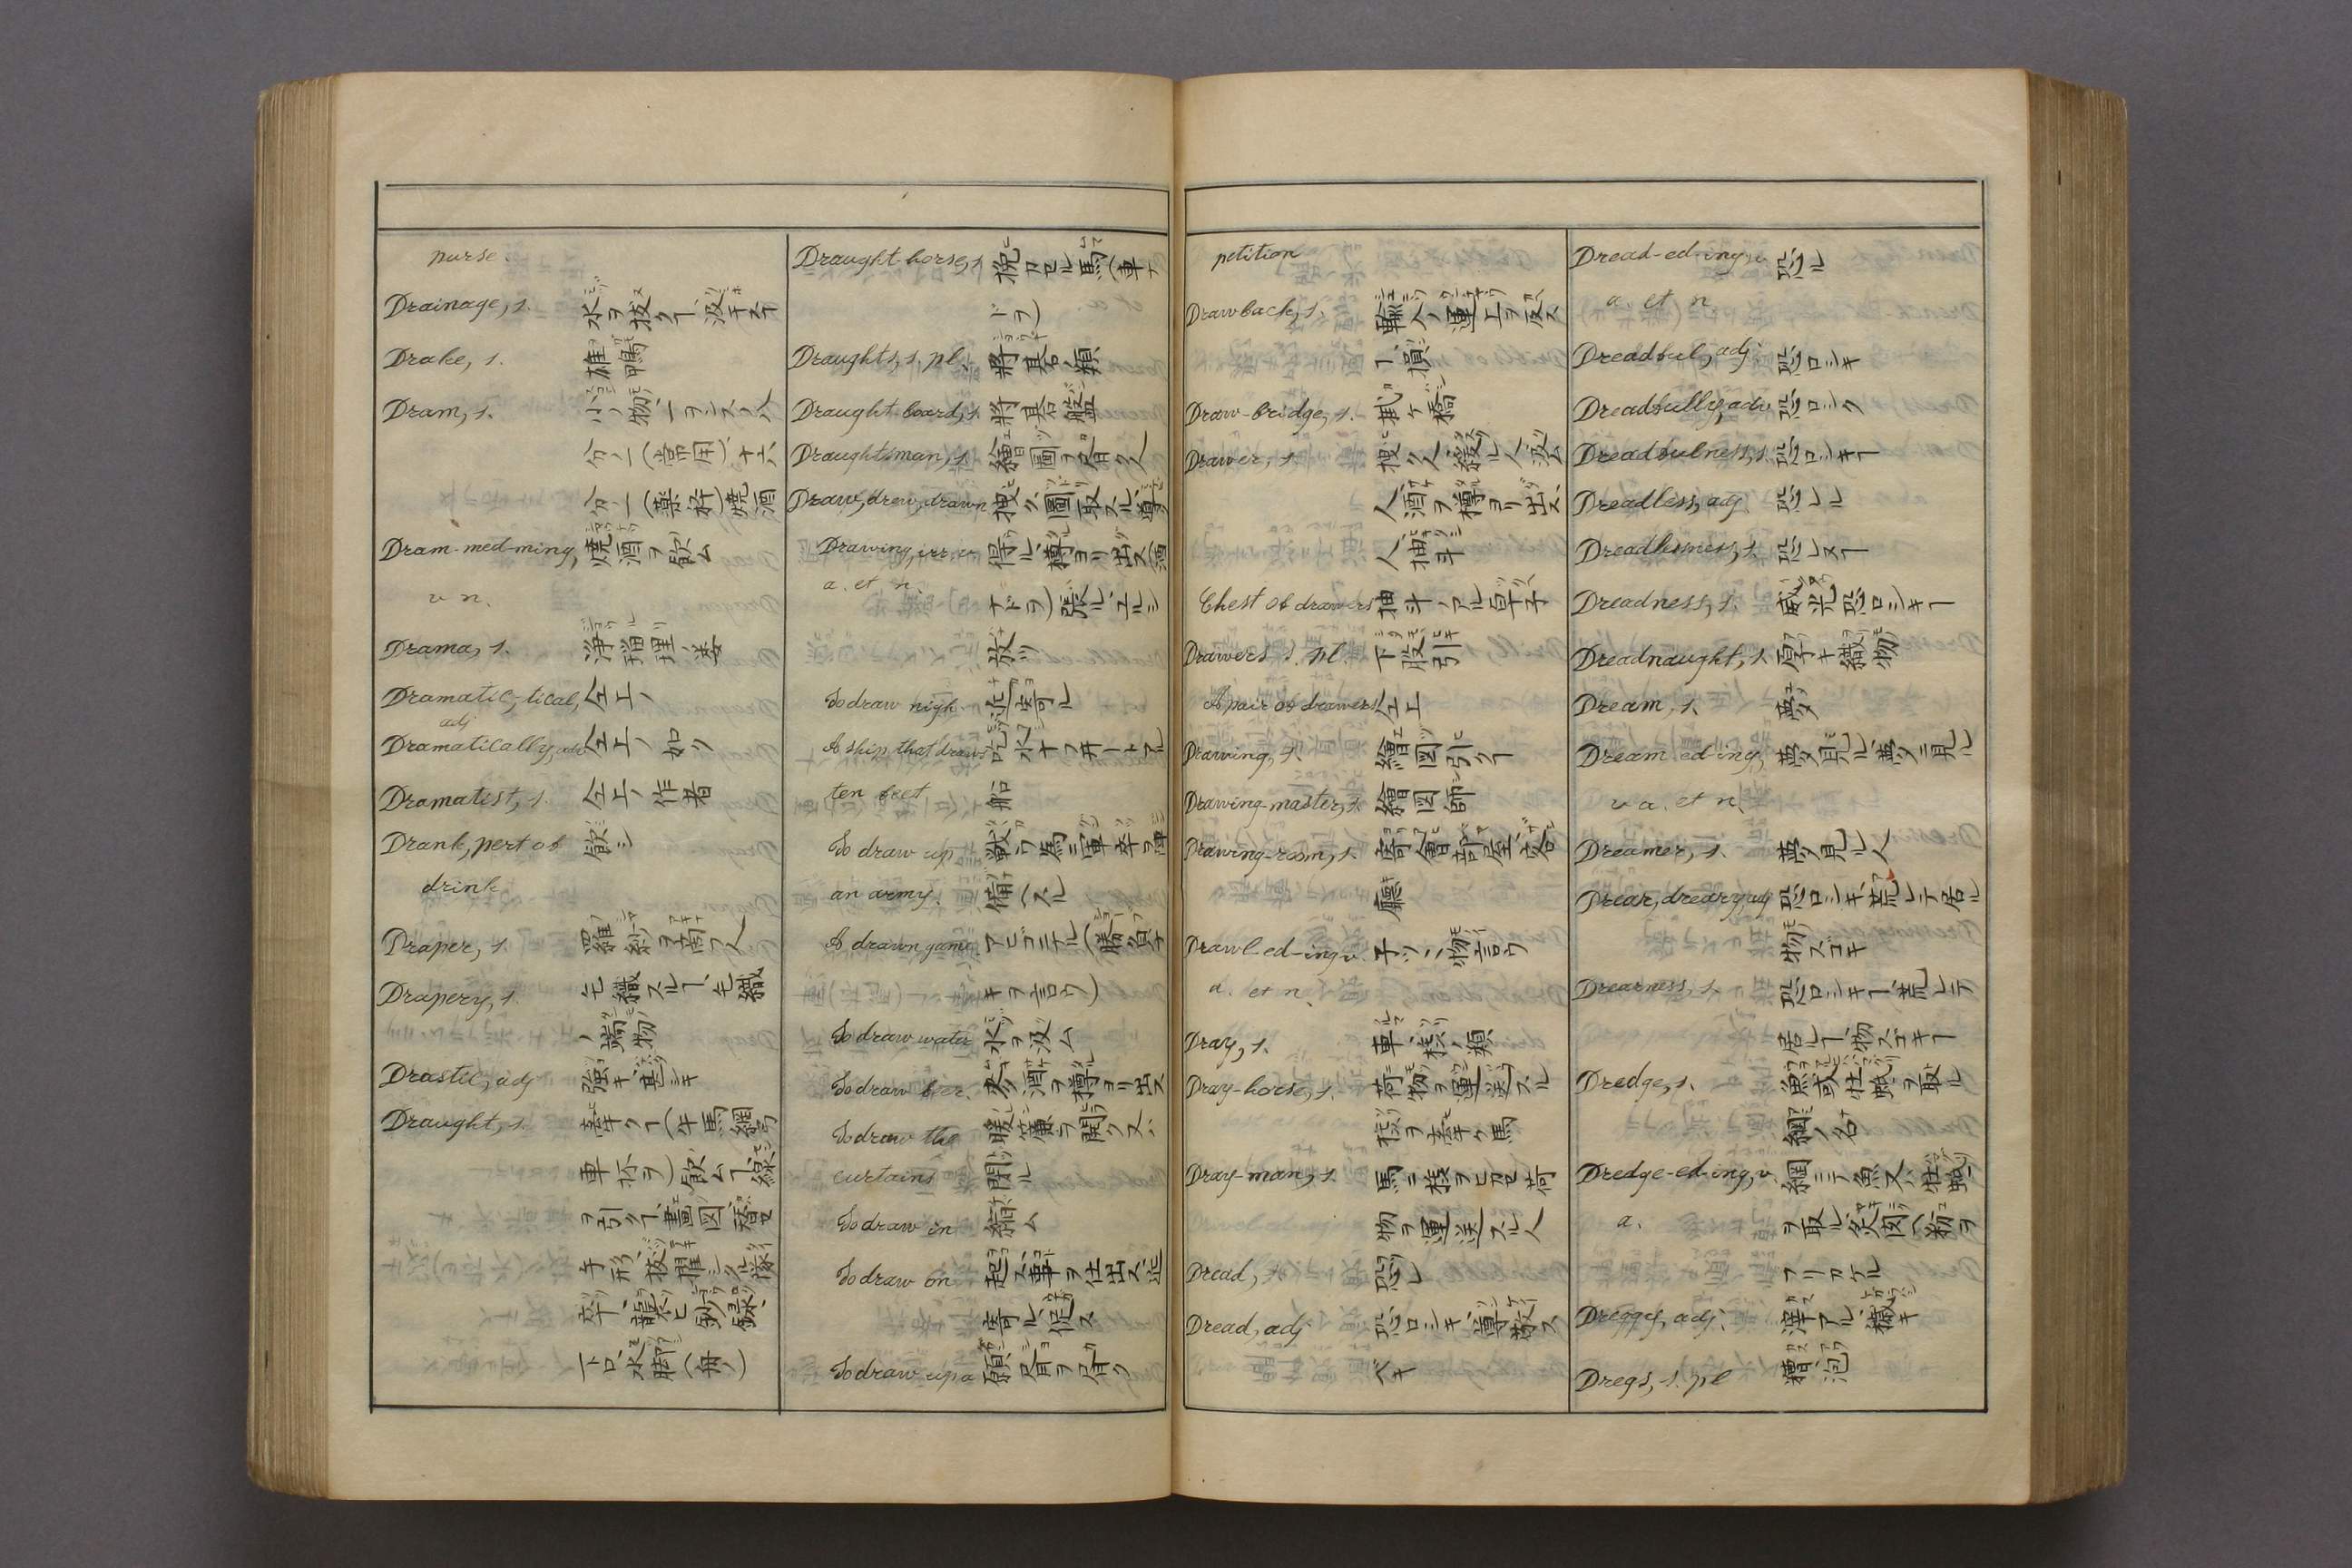 purse.
Drainage, s. 水ヲ抜クヿ、汲干ヿ
Drake, s. 雄鴨
Dram, s. 小ノ物
分ノ一(常用)十六
分ノ一(薬秤)焼酒
Dram-med-ming, 焼酒ヲ飲ム
v n.
Drama, s. 浄瑠理ノ姿
Dramatic, tical, 仝上ノ
adj
Dramatically, adv 仝上ノ如ク
Dramatist, s. 仝上ノ作者
Drank, pert of 飲シ
drink
Draper, s. 羅紗ヲ商フ人
Drapery, s. 毛織スルヿ、毛織
ノ端物
Drastic, adj 強キ、甚シキ
Draught, s. 牽クヿ(牛馬網弓
車抔ヲ)飲ムヿ、線
ヲ引クヿ、畫図、替セ
手形、抜擢シタル隊
卒、龍吐ヒ、鈔録、
下口、水脚(舟ノ)
Draught-horse, s 挽カセル馬(車ナ
ドヲ)
Draughts, s. pl. 將棊ノ類
Draught-board, s. 將棊盤
Draughtsman, s. 繪圖ヲ書ク人
Draw, drew, drawn 拽ク、圖取スル、導ク
Drawing, irr. v. 得ル、樽ヨリ出ス(酒
a. et n. ナドヲ)張ル
放ツ
To draw nigh 近寄ル
A ship that draws 吃水
ten feet 船
To draw up 戦ノ為ニ軍卒ヲ
an army. 備ヘスル
A drawn game. アビコニテル(勝負ナ
キヲ言ウ)
To draw water 水ヲ汲ム
To draw beer. 麦酒ヲ樽ヨリ出ス
To draw the 暖簾ヲ開ク又ハ
curtains 閉ル
To draw in 縮ム
To draw on 起ス、事ヲ仕出ス、近
寄ル、促ス
To draw up a 願書ヲ作ク
petition
Drawback, s. 輸入ノ運上ヲ戻ス
ヿ、損
Draw-bridge, s. 刎ケ橋
Drawer, s. 拽ク人、綴ル人、汲ム
人、酒ヲ樽ヨリ出ス
人、抽斗
Chest of drawers 抽斗ノアル箪子
Drawers s. pl 下股引
A pair of drawers 仝上
Drawing, s. 繪図引クヿ
Drawing-master, s. 繪図師
Drawing-room, s. 寄會部屋、座
廳
Drawl-ed-ing v. 子ツヽ物言ウ
a. et n.
Dray, s. 車、橇ノ類
Dray-horse, s. 荷物ヲ運送スル
橇ヲ牽ク馬
Dray-man, s. 馬ニ橇ヲヒカセ荷
物ヲ運送スル人
Dread, s. 恐レ
Dread, adj 恐ロシキ、尊敬ス
ベキ
Dread-ed-ing v. 恐ル
a. et n
Dreadful, adj 恐ロシキ
Dreadfully, adv 恐ロシク
Dreadfulness, s. 恐ロシキヿ
Dreadless, adj 恐レル
Dreadlessness, s. 恐レヌヿ
Dreadness, s. 威光恐ロシキヿ
Dreadnaught, s. 厚キ織物
Dream, s. 夢
Dream-ed-ing, 夢見ル、夢ニ見ル
v a. et n.
Dreamer, s. 夢見ル人
Drear, dreary, adj 恐ロシキ、荒レテ居ル
物スゴキ
Drearness, s. 恐ロシキヿ、荒レテ
居ルヿ、物スゴキヿ
Dredge, s. 魚或牡蠣ヲ取ル
網ノ名
Dredge-ed-ing, v. 網ニテ魚又ハ牡蠣
a. ヲ取ル、炙肉ヘ粉ヲ
フリカケル
Dreggy, adj. 滓アル、穢キ
Dregs, s. pl 糟、泡